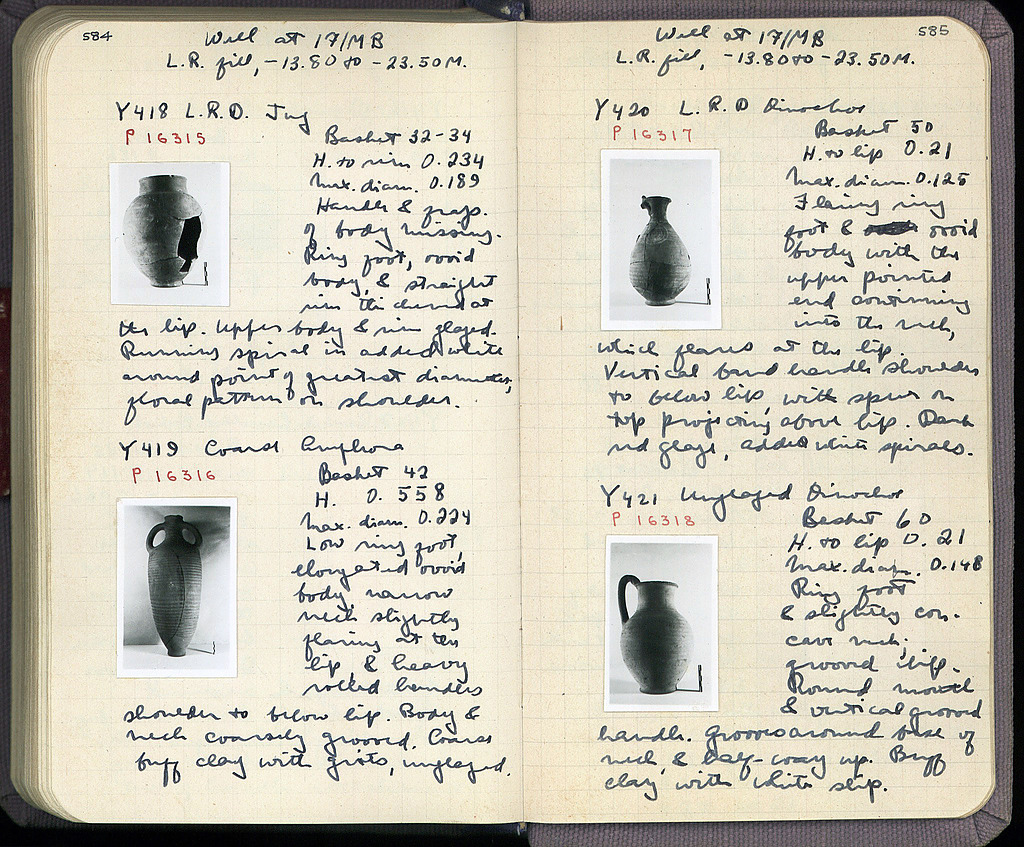 584
Well at 17/MB
L.R. fill, -13.80 to -23.50 M.
Y418 L.R.D. Jug
P 16315
Basket 32-34
H. to rim 0.234
Max. diam. 0.189
Handle & frags.
of body missing.
Ring foot, ovoid
body, & straight
rim thickened at
the lip. Upper body & rim glazed.
Running spiral in added white
around point of greatest diameter,
floral pattern on shoulder.
Y419 Coarse Amphora
P 16316
Basket 42
H. 0.558
Max. diam. 0.224
Low ring foot,
elongated ovoid
body narrow
neck slightly
flaring at the
lip, & heavy
rolled handles
shoulder to below lip. Body &
neck coarsely grooved. Coarse
buff clay with grits, unglazed.
585
Well at 17/MB
L.R. fill, -13.80 to -23.50 M.
Y420 L.R.D Oinochoe
P 16317
Basket 50
H. to lip 0.21
Max. diam. 0.125
Flaring ring
foot & ovoid
body with the
upper pointed
end continuing
into the neck,
which flares at the lip.
Vertical band handle shoulder
to below lip, with spur on
top projecting above lip. Dark
red glaze, added white spirals.
Y421 Unglazed Oinochoe
P 16318
Basket 60
H. to lip 0.21
Max. diam. 0.148
Ring foot
& slightly con-
cave neck;
grooved lip.
Round mouth
& vertical grooved
handle. Grooves around base of
neck & half-way up. Buff
clay with white slip.